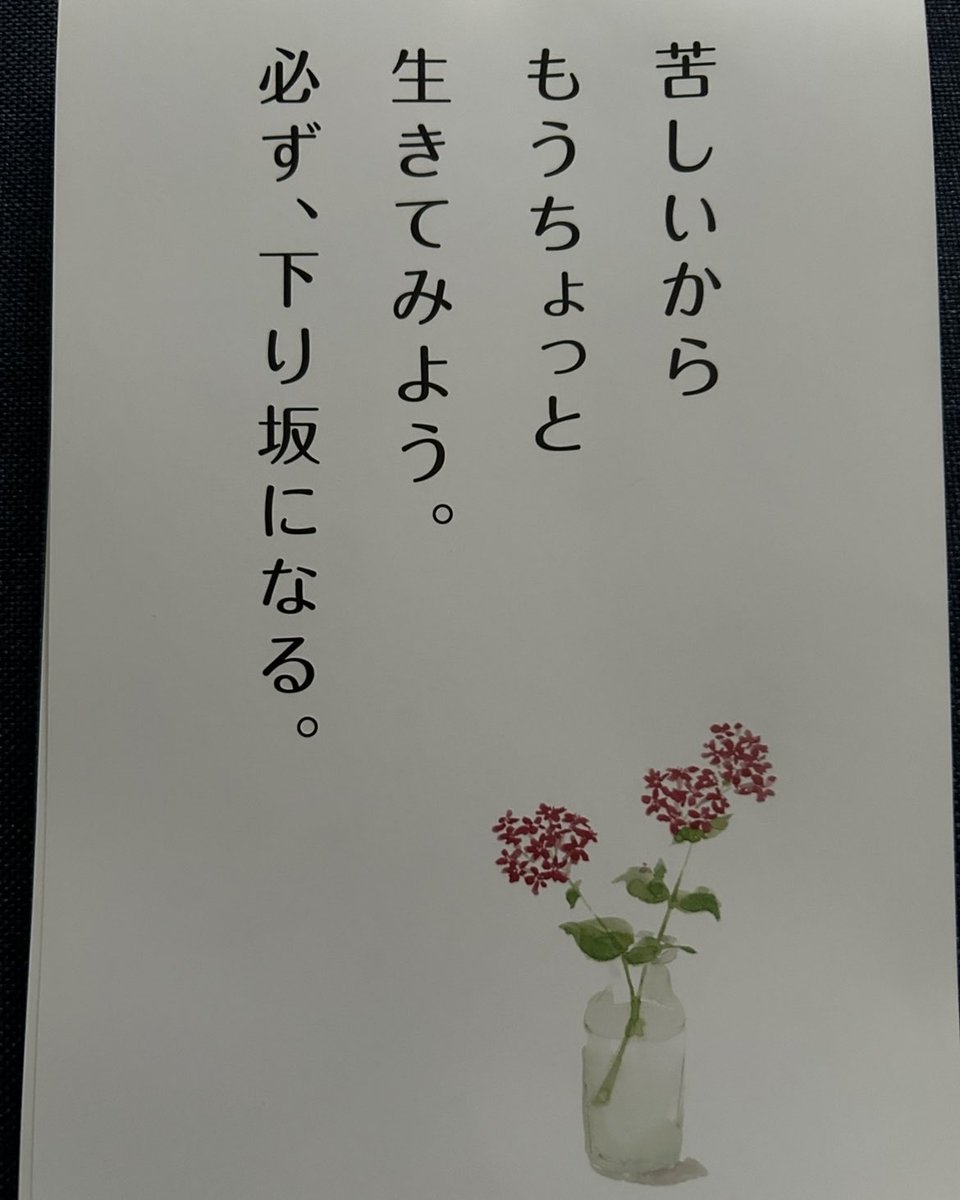 苦しいから
もうちょっと
生きてみよう。
必ず、下り坂になる。